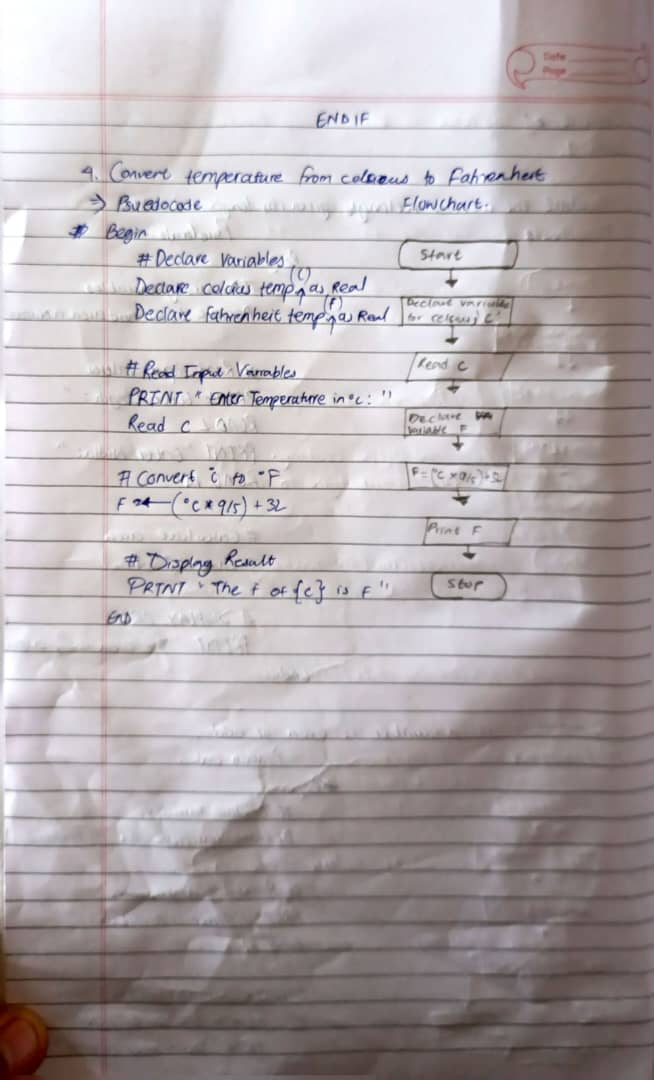 Date
Page
END IF
4. Convert temperature from celcious to Fahrenheit
⇒ Psuedocode
Flowchart.
Begin
# Declare Variables
(C)
Declare celcius temp ^ as Real
(F)
Declare Fahrenheit temp ^ as Real
# Read Input Varrables
PRINT " Enter Temperature in °c: "
Read c
# Convert °c to °F
F ← (°C * 9/5) + 32
# Display Result
PRINT " The f of {c} is F "
END
Start
Declare variable
for celsius 'C'
Read C
Declare
Variable F
F = (°C × 9/5) + 32
Print F
Stop